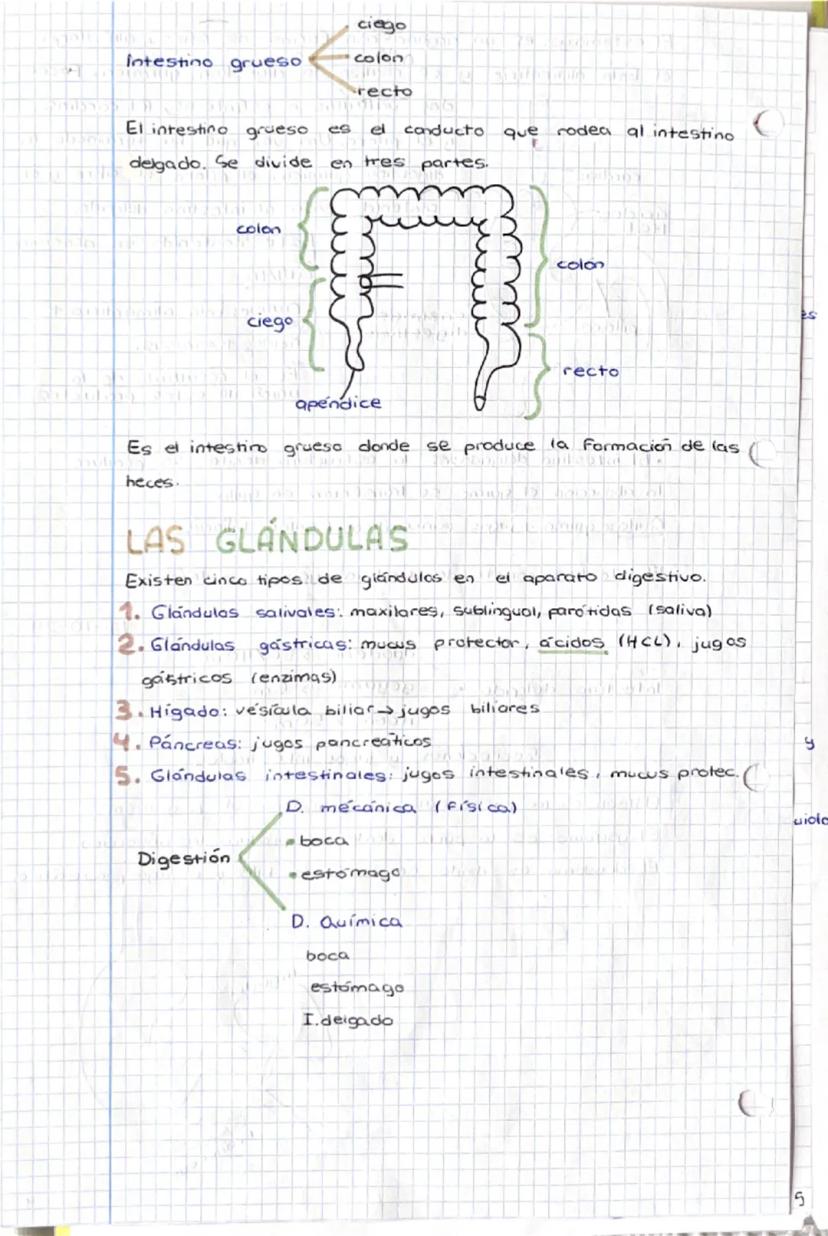 ciego
Intestino grueso
colon
recto
El intestino grueso es el conducto que rodea al intestino
delgado. Se divide en tres partes.
colon
colon
ciego
recto
apéndice
Es el intestino grueso donde se produce la formación de las
heces.
LAS GLÁNDULAS
Existen cinco tipos de glándulas en el aparato digestivo.
1. Glándulas salivales: maxilares, sublingual, parótidas (saliva)
2. Glándulas gástricas: mucus protector, ácidos (HCL), jugos
gástricos (enzimas)
3. Hígado: vesícula biliar → jugos biliares
4. Páncreas: jugos pancreáticos
5. Glándulas intestinales: jugos intestinales, mucus protec.
D. mecánica (Física)
• boca
Digestión
• estómago
D. Química
boca
estómago
I. delgado
es
y
5